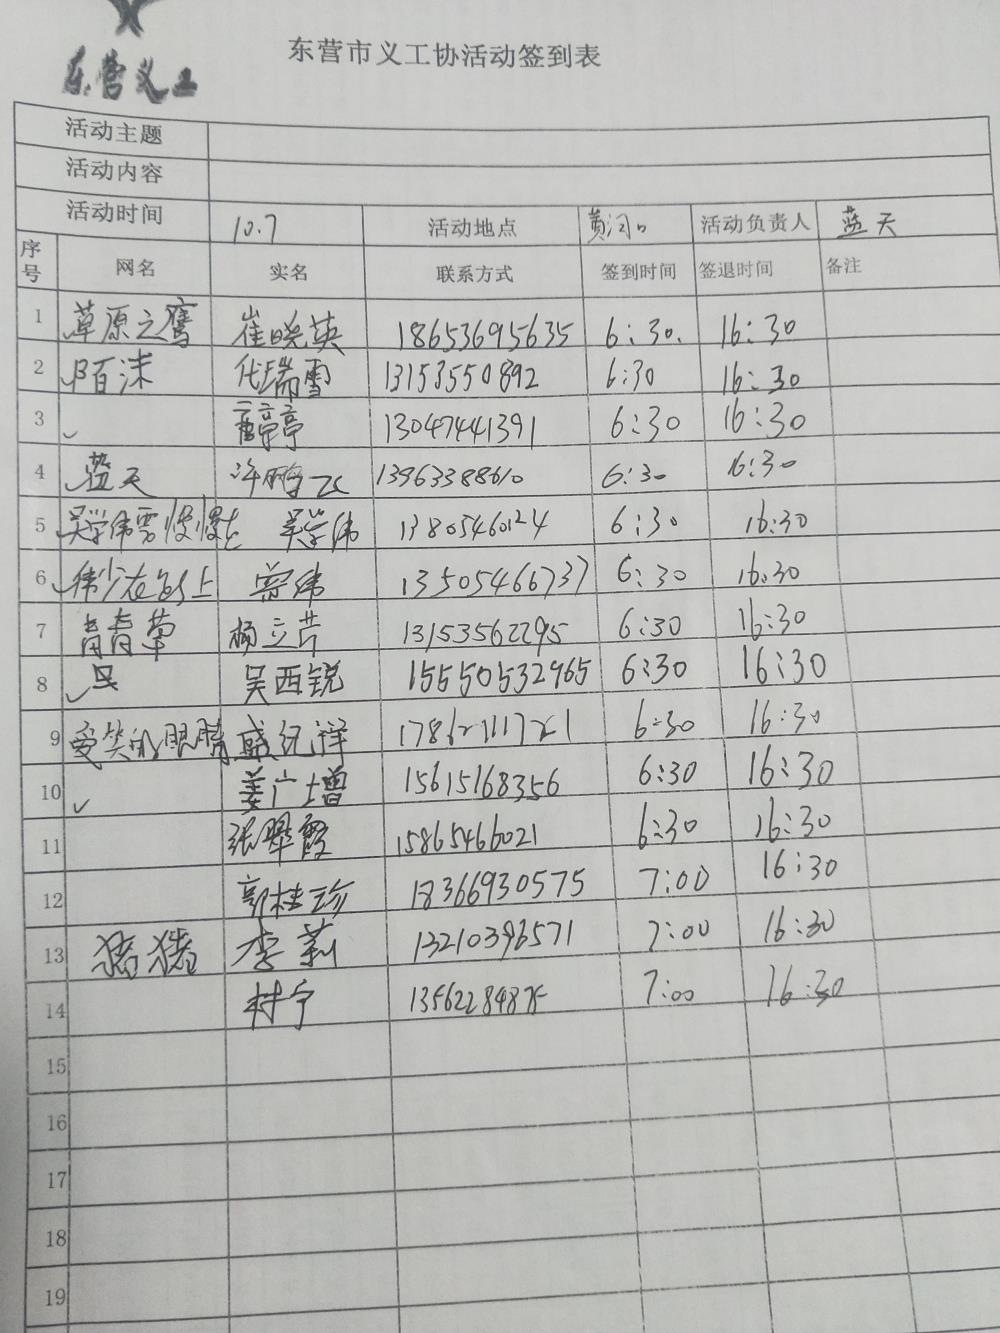 东营义工
东营市义工协活动签到表
活动主题
活动内容
活动时间 10.7 活动地点 黄河口 活动负责人 蓝天
序号 网名 实名 联系方式 签到时间 签退时间 备注
1 草原之鹰 崔晓英 18653695635 6:30. 16:30
2 陌沫 代瑞雪 13153550892 6:30 16:30
3 ✓ 亭 13047441391 6:30 16:30
4 蓝天 许鹏飞 13963388610 6:30 16:30
5 吴学伟 吴学伟 13805460124 6:30 16:30
6 伟少在路上 伟 13505466737 6:30 16.30
7 青青草 杨立芹 13153562295 6:30 16:30
8 ✓吴 吴西锐 15550532965 6:30 16:30
9 爱笑的眼睛 盛纪祥 17862111721 6:30 16:30
10 ✓ 姜广增 15615168356 6:30 16:30
11 张翠霞 15865466021 6:30 16:30
12 郭桂珍 18366930575 7:00 16:30
13 猪猪 李莉 13210396571 7:00 16:30
14 村宁 13562284875 7:00 16:30
15
16
17
18
19